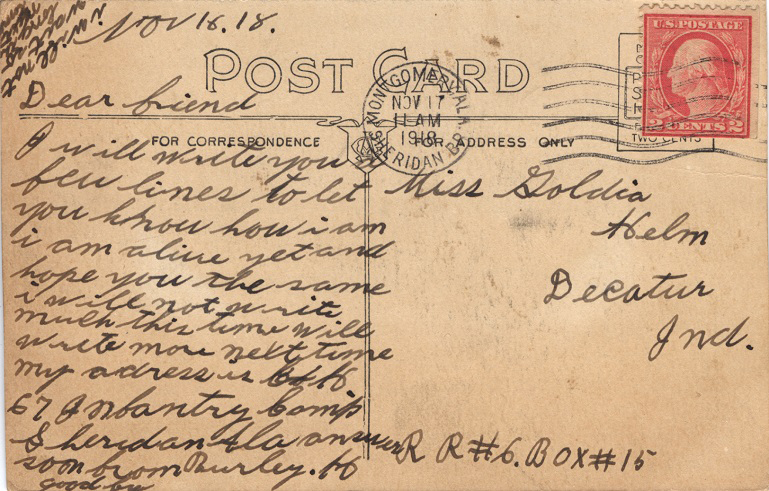 i will not
Nov 18.18.
U.S. POSTAGE
2 CENTS 2
POST CARD
MONTGOMERY, ALA.
NOV 17
11 AM
1918
SHERIDAN BR.
TWO CENTS
FOR CORRESPONDENCE
FOR ADDRESS ONLY
Dear friend
I will write you
few lines to let
you know how i am
i am alive yet and
hope you the same
i will not write
much this time will
write more next time
my adress is Co H
67 Infantry Camp
Sheridan Ala answer
soon from Burley. H
good by
Miss Goldia
Helm
Decatur
Ind.
R R#6. BOX#15